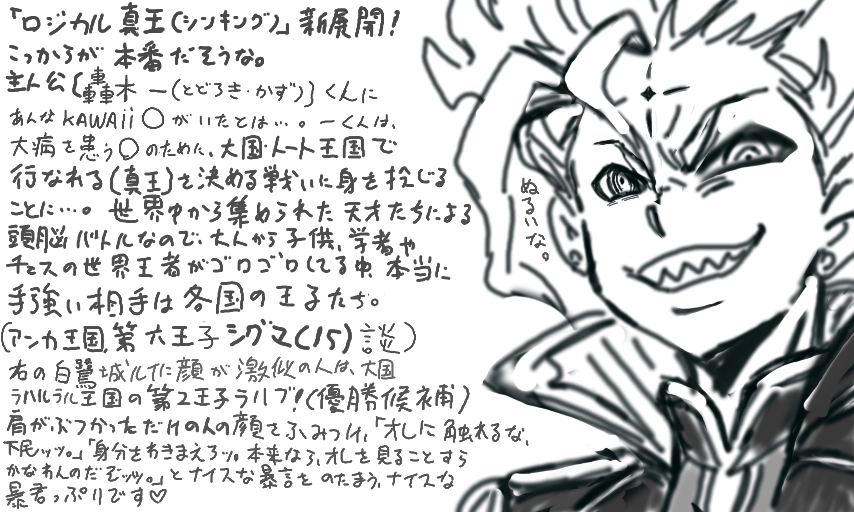 「ロジカル真王(シンキング)」新展開!
こっからが本番だそうな。
主人公{轟木 一(とどろき・かず)}くんに
あんなKAWAii〇がいたとは…。一くんは、
大病を患う〇のために、大国・ルート王国で
行なれる{真王}を決める戦いに身を投じる
ことに…。世界中から集められた天才たちによる
頭脳バトルなので、大人から子供、学者や
チェスの世界王者がゴロゴロしてる中、本当に
手強い相手は各国の王子たち。
(アンカ王国、第六王子シグマ(15)談)
右の白鷺城ルイに顔が激似の人は、大国
ラハルラル王国の第2王子ラルブ!(優勝候補)
肩がぶつかっただけの人の顔をふみつけ、「オレに触れるな、
下民ッッ。」「身分をわきまえろッ。本来なら、オレを見ることすら
かなわんのだぞッッ。」とナイスな暴言をのたまう、ナイスな
暴君っぷりです♡
ぬるいな。